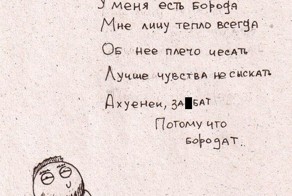 У меня есть борода
Мне лицу тепло всегда
Об нее плечо чесать
Лучше чувства не сискать
Ахуенен, за бат
Потому что
бородат..